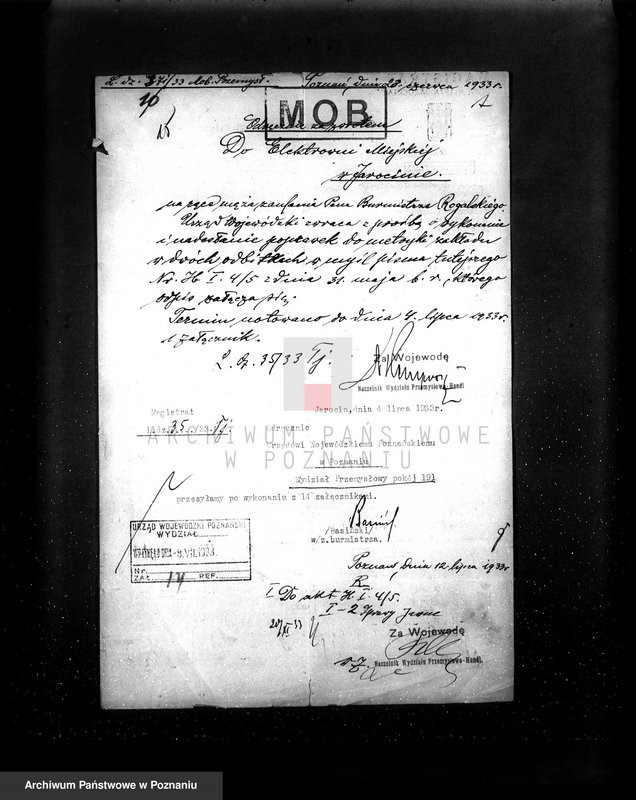 L. dz. 371/33 Mob. Przemysł. Poznań, dnia 28. czerwca 1933 r.
MOB
Do Elektrowni Miejskiej
w Jarocinie.
na ręce męża zaufania Pana Burmistrza Rogalskiego.
Urząd Wojewódzki zwraca z prośbą o wykonanie
i nadesłanie poprawek do metryki zakładu
w dwóch odbitkach w myśl pisma tutejszego
Nr. H. I. 4/5 z dnia 31. maja b. r., którego
odpis załącza się.
Termin notowano do dnia 4. lipca 1933 r.
1 załącznik.
L. dz. 35/33 Tj.
Za Wojewodę
Naczelnik Wydziału Przemysłowo-Handl
Magistrat
Jarocin, dnia 4 lipca 1933r.
l.dz. 35 /33 Tj.
Odręcznie
Urzędowi Wojewódzkiemu Poznańskiemu
w Poznaniu
Wydział Przemysłowy pokój 191
przesyłamy po wykonaniu z 14 załącznikami.
ARCHIWUM PAŃSTWOWE
W POZNANIU
/Basiński/
w/z.burmistrza.
URZĄD WOJEWÓDZKI POZNAŃSKI
WYDZIAŁ
VII.1933
Nr.
ZAŁ. 14 REF.
Poznań, dnia 12. lipca 1933 r
I. Do akt H. I. 4/5.
Za Wojewodę
Naczelnik Wydziału Przemysłowo-Handl.
Archiwum Państwowe w Poznaniu